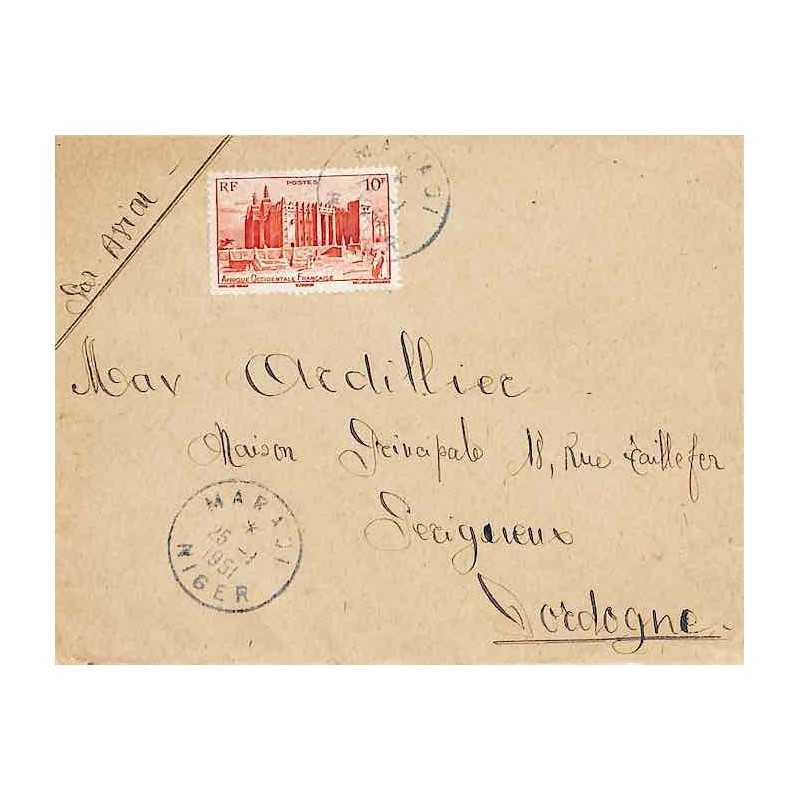 Par Avion
RF POSTES 10F
AFRIQUE OCCIDENTALE FRANÇAISE
MARADI
Max Ardillier
Maison Principale 18, Rue Taillefer
Perigueux
Dordogne
MARADI
25 -1
1951
NIGER